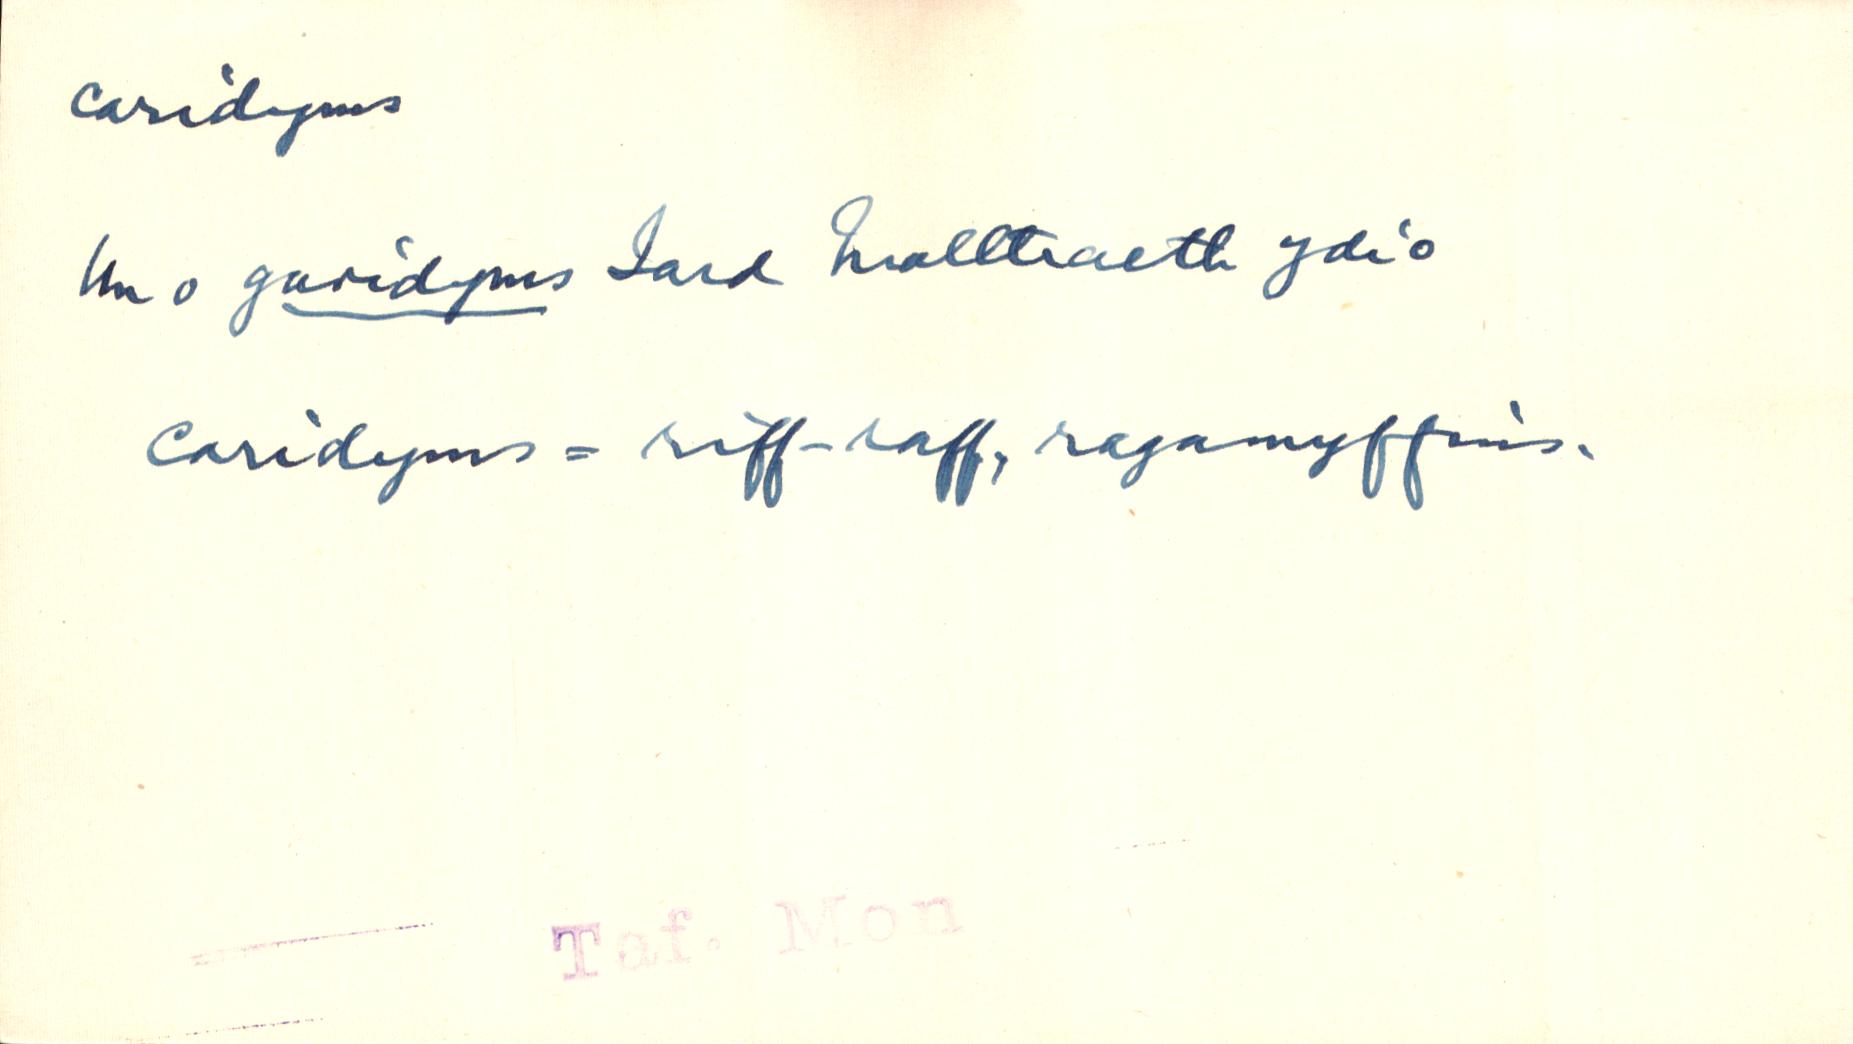 caridyms
Un o garidyms Iard Malltraeth ydi'o
Caridyms = riff-raff, ragamyffins.
Taf. Mon